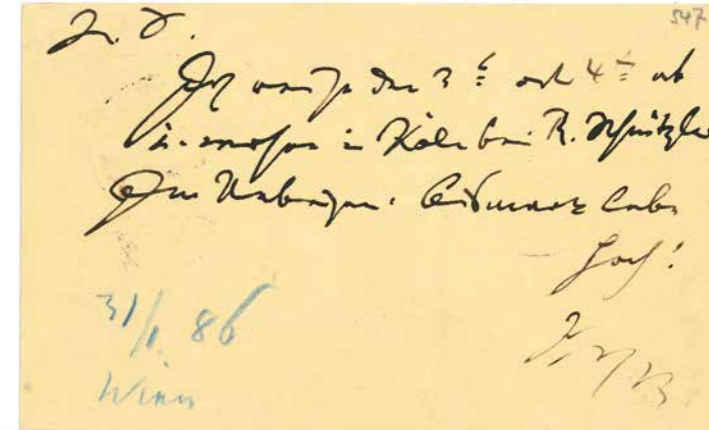 547
L. F.
Ich reise den 3t oder 4t ab
u. wohne in Köln bei R. Schnitzler
Im Uebrigen: Bismarck lebe
hoch!
31/1. 86
Wien